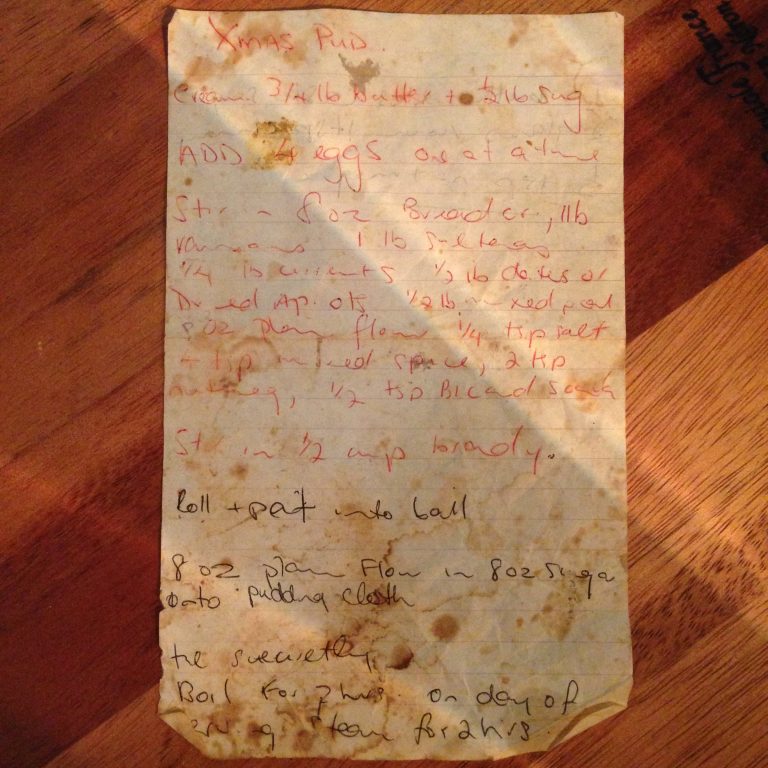 Xmas Pud.
Cream 3/4 lb butter + 1/2 lb Sug
ADD 4 eggs one at a time
Stir in 8 oz Breadcr, 1lb
1 lb Sultanas
1/4 lb currents 1/2 lb dates or
Dried Ap. ots, 1/2 lb mixed peel
8 oz plain flour 1/4 tsp salt
tsp mixed spice, 2 tsp
nutmeg, 1/2 tsp Bicard Soda
Stir in 1/2 cup brandy.
Roll + pat into ball
8 oz plain Flour in 8oz Suga
onto pudding cloth
tie securely
Boil for 7 hrs. on day of
Steam for 2 hrs.